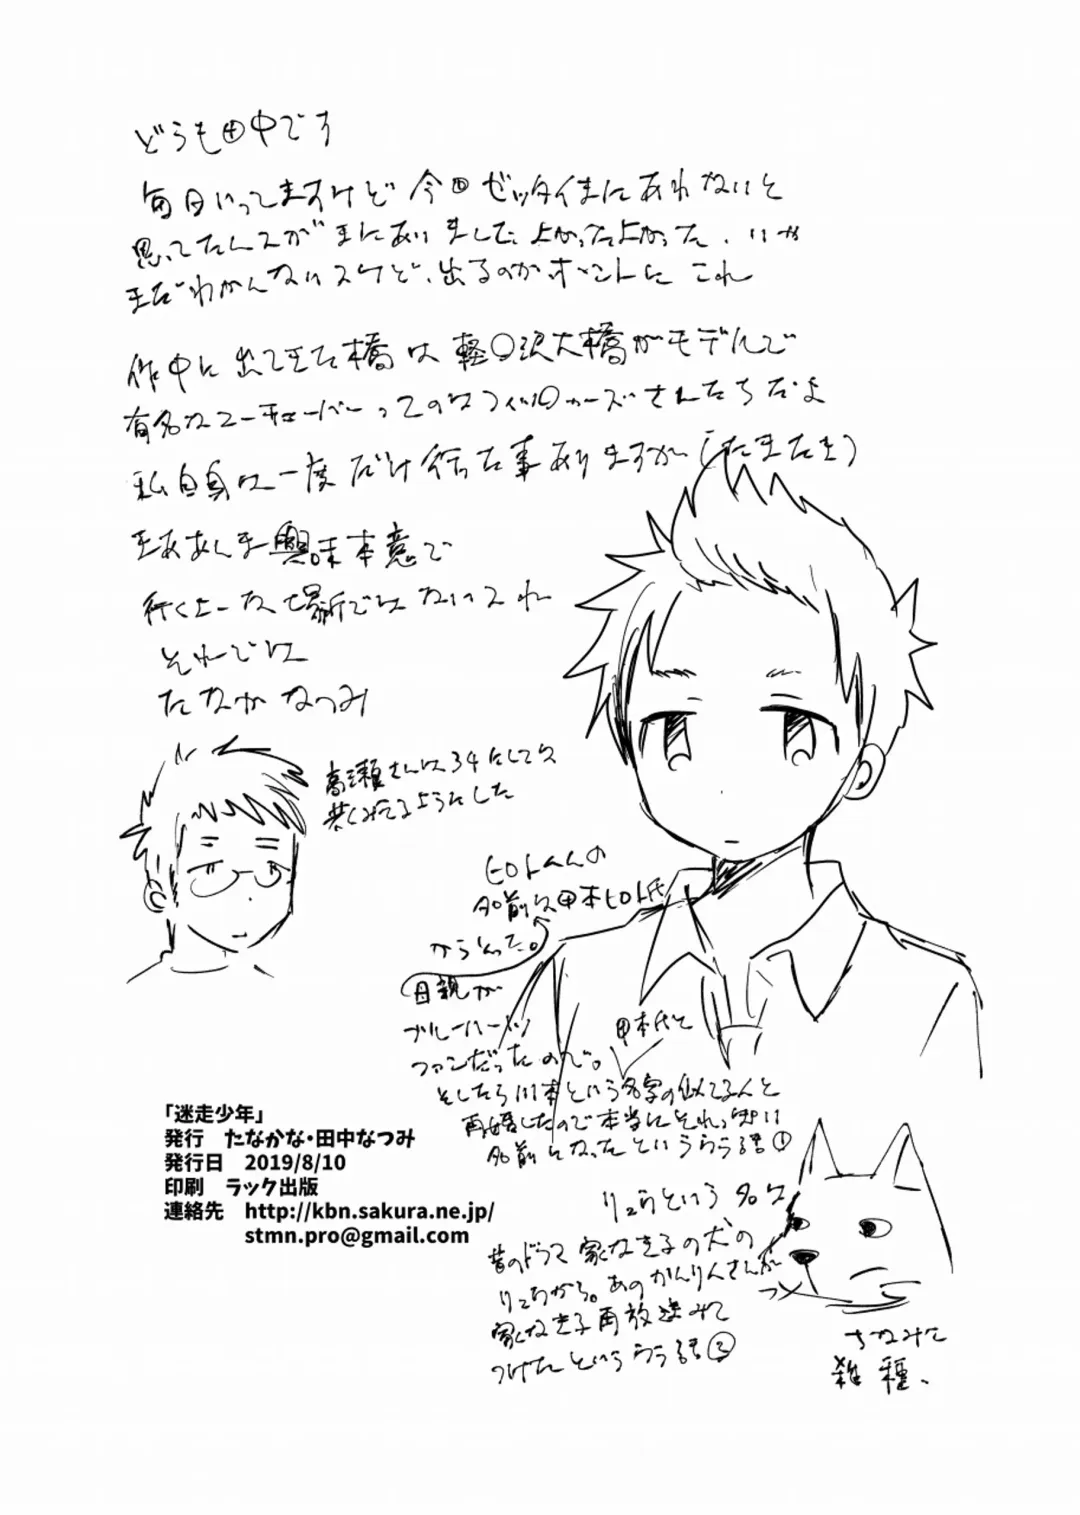 どうも田中です
毎日いってますけど今回ゼッタイまにあわないと
思ってたんスがまにあいました。よかったよかった、いや
まだわかんないスけど、出るのかホントに これ
作中に出てきた橋は軽〇沢大橋がモデルで
有名なユーチューバーってのはフィッ〇ャーズさんたちだよ
私自身は一度だけ行った事ありますが(たまたま)
まああんま興味本意で
行くよーな場所ではないスね
それでは
たなか なつみ
高瀬さんは34にしては
若くみてるようにした
ヒロトくんの
名前は甲本ヒロト氏
からとった。
母親が
ブルーハーツ
ファンだったので。
甲本氏と
そしたら川本という名字の似てる人と
再婚したので本当にそれっぽい
名前になったというウラ話①
リュウという名は
昔のドラマ 家なき子の犬の
リュウから。あのかんりんさんが
家なき子再放送みて
つけたというウラ話②
ちなみに
雑種、
「迷走少年」
発行 たなかな・田中なつみ
発行日 2019/8/10
印刷 ラック出版
連絡先 http://kbn.sakura.ne.jp/
stmn.pro@gmail.com